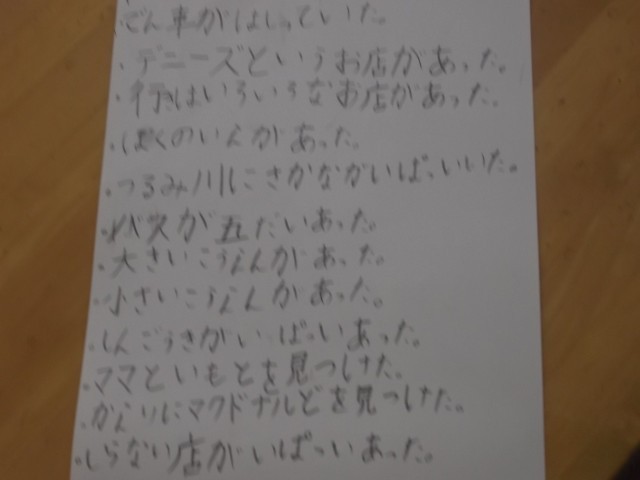 でん車がはしっていた。
・デニーズというお店があった。
・行きはいろいろなお店があった。
・ぼくのいえがあった。
・つるみ川にさかながいぱっいいた。
・バスが五だいあった。
・大きいこうえんがあった。
・小さいこうえんがあった。
・しんごうきがいぱっいあった。
・ママといもとを見つけた。
・かえりにマクドナルどを見つけた。
・しらない店がいぱっいあった。